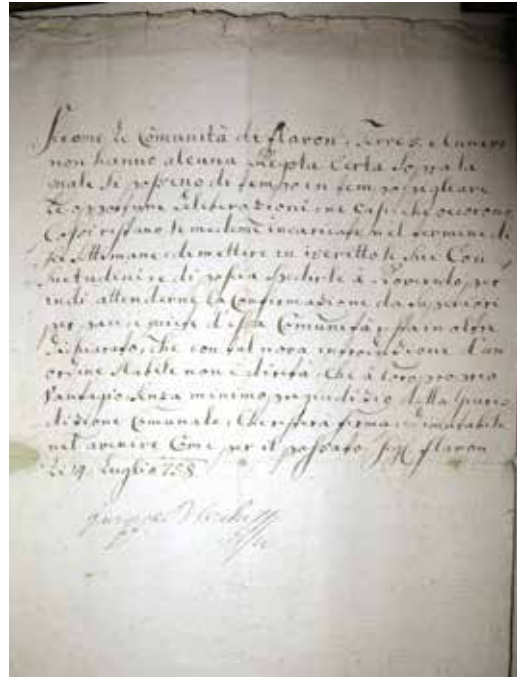 Sicome le Comunità di Flavon, Terres, e Cunevo
non hanno alcuna Regola Certa sopra la
quale si possino di tempo in tempo pigliare
le opportune deliberazioni ne Casi, che occorono
Così restano le medeme incaricate nel termine di
sei settimane di mettere in iscritto le sue Con-
suetudini, e di poscia spedirle à Rovereto, per
indi attenderne la Confirmazione da Superiori
per pace, e quiete d'essa Comunità, e sta in oltre
dichiarato, che con tal nova introduzione d'un
ordine stabile non è diretta che à loro proprio
Vantagio senza minimo pregiudizio della Giuris-
dizione Comunale, che resterà ferma, ed imutabile
nel avenire Come per il passato. Flavon
li 14 Luglio 758